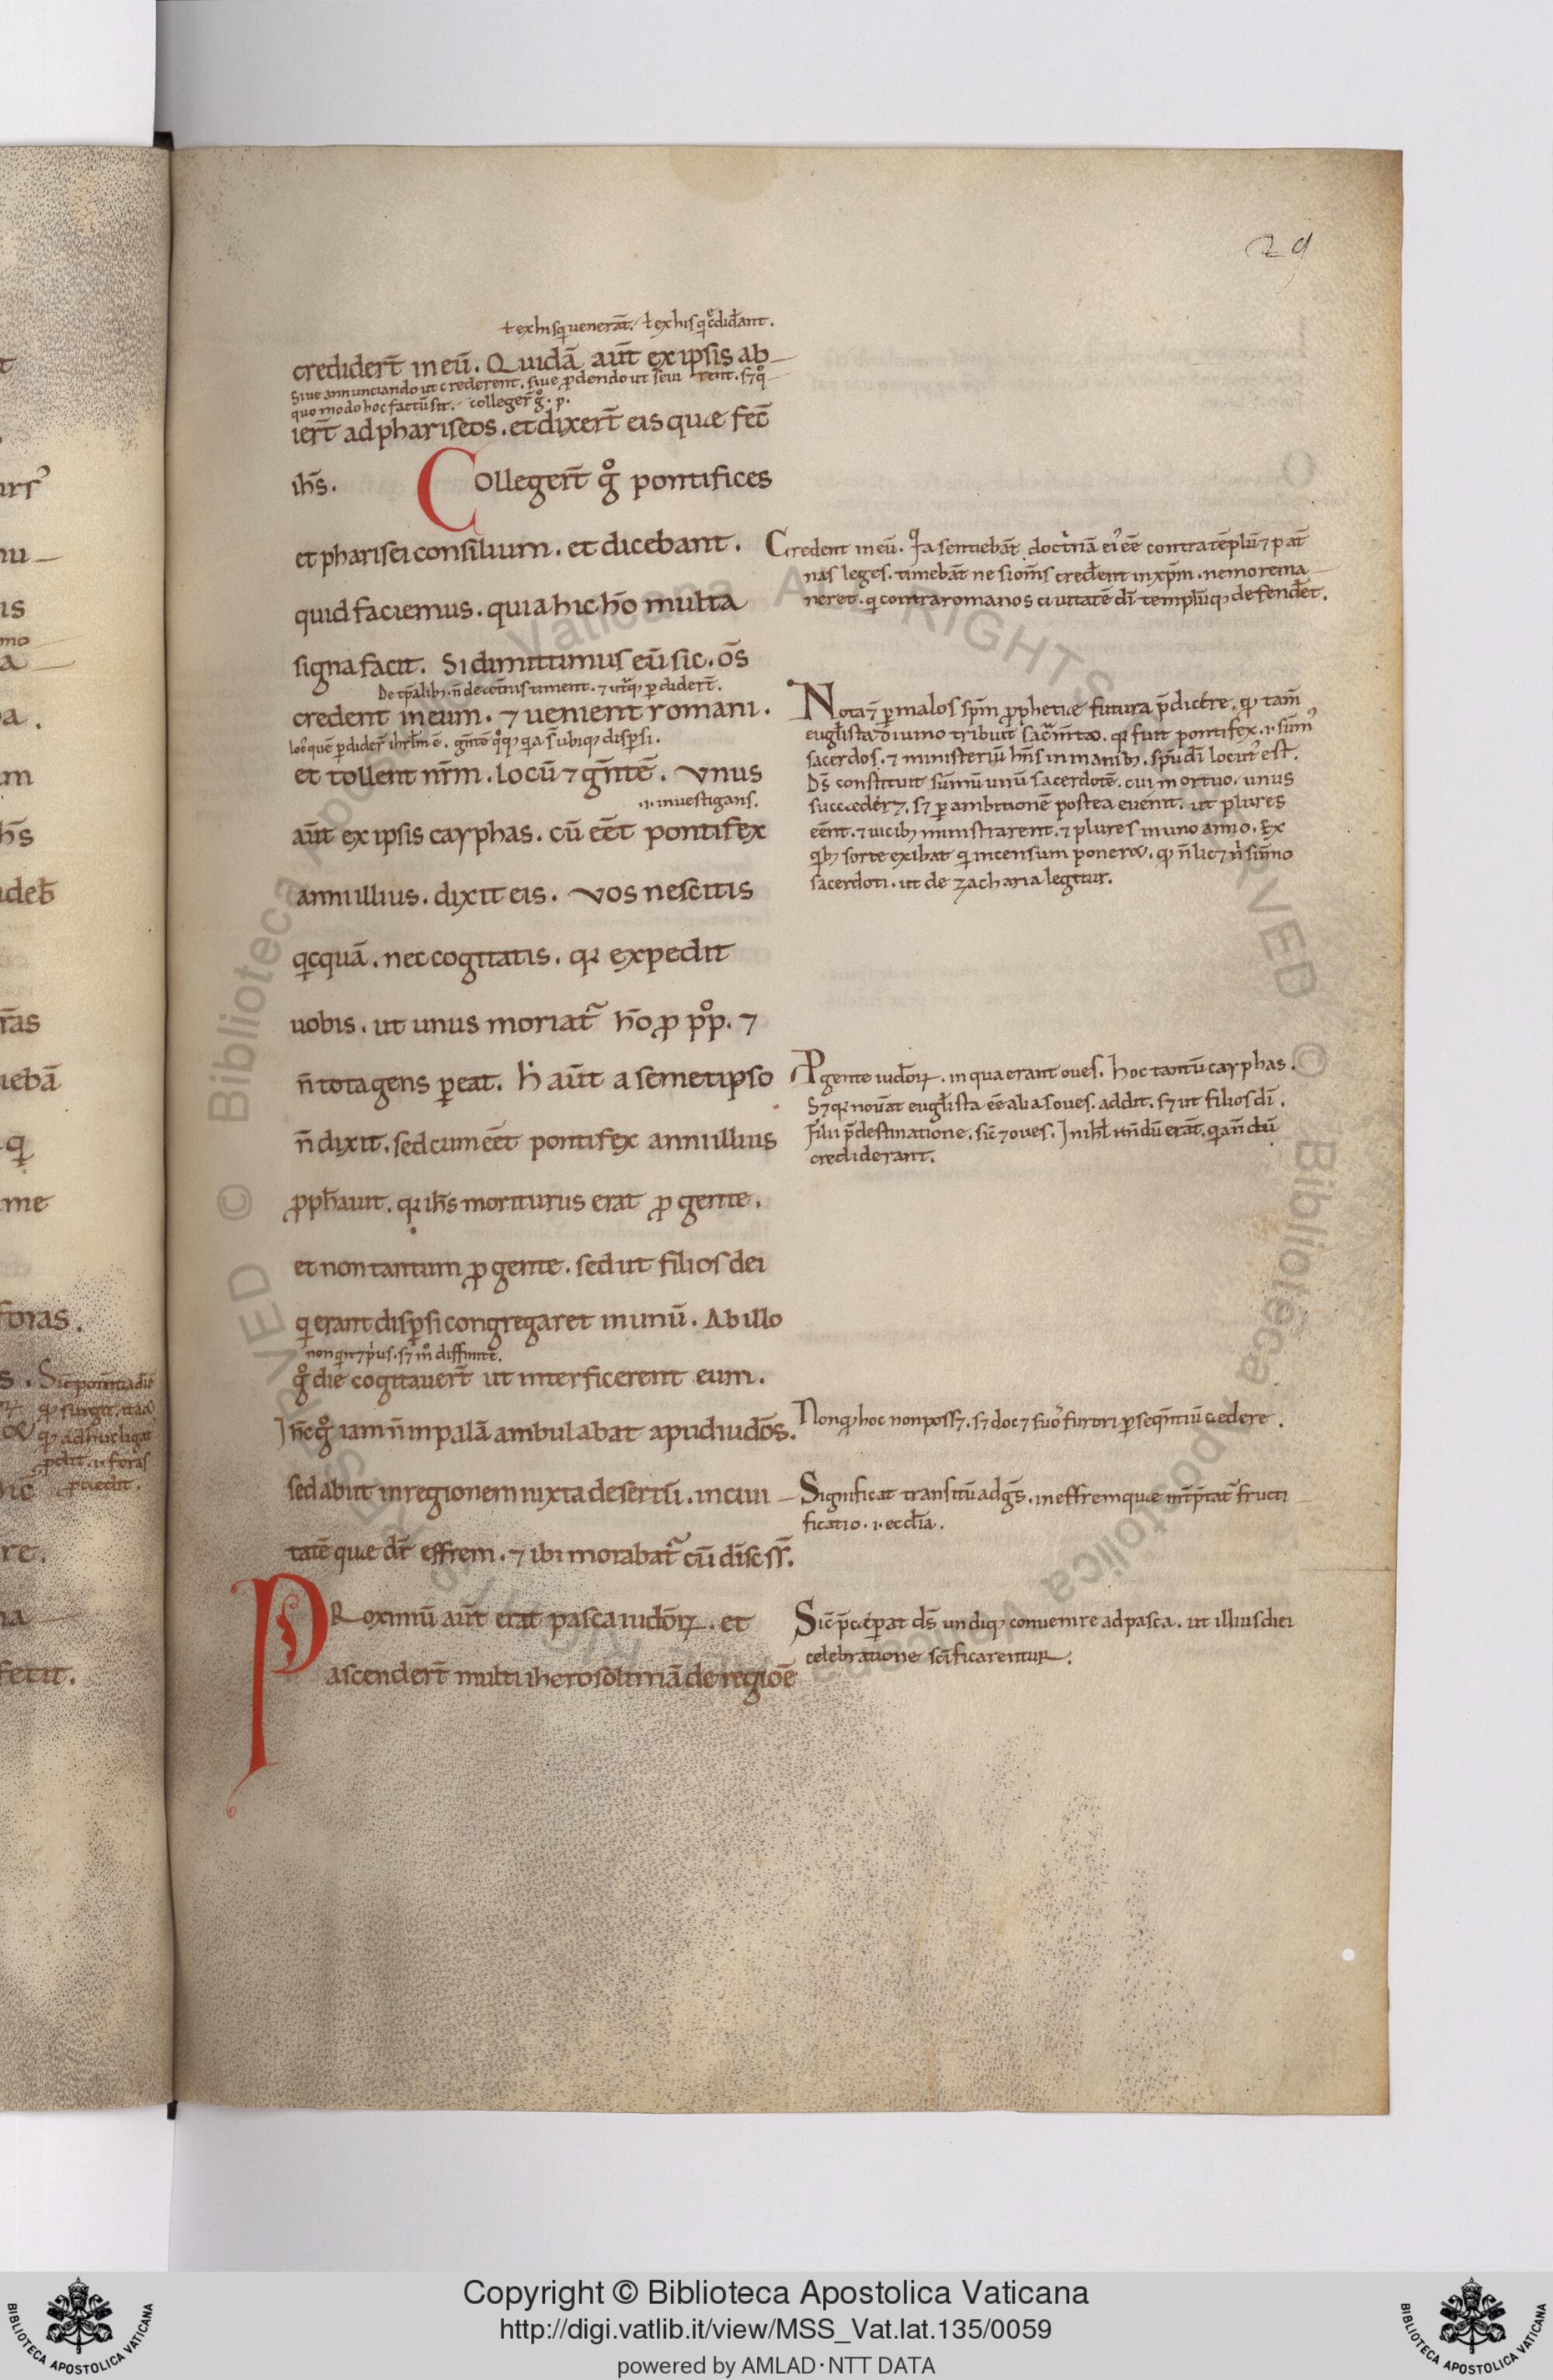 29
ł ex his q uenerāt. ł ex his q c̄didāt.
crediderт̄ in eū. Quidā aūt ex ipsis ab
Siue annunciando ut crederent. siue p̄dendo ut seui rent. s; q̊
quo modo hoc factū sit. collegert̄ g̊. p.
iert̄ ad phariseos. et dixert̄ eis quæ fec̄
ih̄s. Collegert̄ g̊ pontifices
et pharisei consilium. et dicebant.
quid faciemus. quia hic h̄o multa
signa facit. Si dimittimus eū sic. ōs
De tp̄alib; n̄ de et̄nis timent. ⁊ utq; p̄didert̄.
credent in eum. ⁊ uenient romani.
et tollent nr̄m. locū ⁊ gn̄tē. Vnus
.i. inuestigans.
aūt ex ipsis cayphas. cū eēt pontifex
anni illius. dixit eis. Vos nescitis
qicquā. nec cogitatis. qꝛ expedit
uobis. ut unus moriat᷑ h̄o ꝓ pp̊. ⁊
n̄ tota gens ꝑeat. h̄ aūt a semetipso
n̄ dixit. sed cum eēt pontifex anni illius
ꝓph̄auit. qꝛ ih̄s moriturus erat ꝓ gente.
et non tantum ꝓ gente. sed ut filios dei
qi erant disꝑsi congregaret in unū. Ab illo
non qn ⁊ p̓us. s; m̊ diffinite.
g̊ die cogitauert̄ ut interficerent eum.
Ih̄c g̊ iam n̄ in palā ambulabat apud iudōs.
sed abiit in regionem iuxta desertū. in ciui
tatē quæ dr̄ effrem. ⁊ ibi morabat᷑ cū disc̄ s̄s.
PRoximū aūt erat pasca iudōꝝ. et
ascendert̄ multi iherosolimā de regiōe
Credent in eū. Qa sentiebāt doct̓nā ei᷒ eē contra tēplū ⁊ pat̄
nas leges. timebāt ne si om̄s cred̄ent in xp̄m. nemo rema
neret. qi contra romanos ciuitatē dī templūq; defend̄et.
Nota ꝑ malos sp̄m ꝓphetiæ futura p̄dicere. q tam̄
eugl̄ista diuino tribuit sac̄m̄to. qꝛ fuit pontifex .i. sūm᷒
sacerdos. ⁊ ministeriū hn̄s in manib;. spū dī locut᷒ est.
Ds̄ constituit sūmū unū sacerdotē. cui mortuo. unus
succæder&. s; ꝑ ambitionē postea euenit. ut plures
eēnt. ⁊ uicib; ministrarent. ⁊ plures in uno anno. Ex
qib; sorte exibat qi incensum poner&. q n̄ lic& n̄ sūmo
sacerdoti. ut de zacharia legitur.
P gente iudōꝝ. in qua erant oues. hoc tantū cayphas.
S; qꝛ nouāt eugl̄ista eē alias oues. addit. s; ut filios dī.
Filii p̄destinatione. sic̄ ⁊ oues. crediderant.
Non q hoc non poss&. s; doc& suo᷒ furori ꝑseqn̄tiū cædere.
Significat transitū ad gs̄. in effrem quæ int̄p̄tat᷑ fructi
ficatio .i. eccl̄ia.
Sic̄ p̄ceperat ds̄ undiq; conuenire ad pasca. ut illius diei
celebratione scīficarentur.
Copyright © Biblioteca Apostolica Vaticana
http://digi.vatlib.it/view/MSS_Vat.lat.135/0059
powered by AMLAD·NTT DATA
BIBLIOTECA APOSTOLICA VATICANA
BIBLIOTECA APOSTOLICA VATICANA